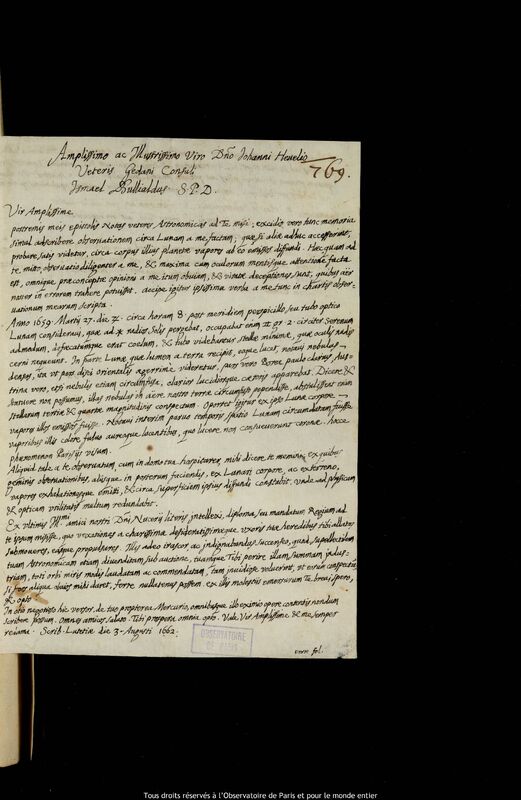 Amplissimo ac Illustrissimo Viro Dño Iohanni Hevelio
769.
Veteris Gedani Consuli
Ismael Bullialdus S. P. D.
Vir Amplissime.
postremis meis epistolis Notas veteres Astronomicas ad Te misi; excidit vero tunc memoria
simul adscribere observationem circa Lunam a me factam; quæ si aliæ adhuc accesserint,
probare satis videtur, circa corpus illius planetæ vapores ab eo emissos diffundi. Hæc quam ad
te mitto observatio diligenter a me, & maxima cum oculorum mentisque attentione facta
est, omnique præconceptæ opinioni a me itum obviam, & vitatæ deceptiones sunt, quibus aër
noster in errorem trahere potuisset. accipe igitur ipsissima verba a me tunc in chartis obser-
vationum mearum scripta.
Anno 1659. Martij 27. die circa horam 8. post meridiem perspicillo seu tubo optico
Lunam consideravi, quæ ad radios Solis pergebat, occupabat enim gr. 2. circiter serenum
admodum, & defæcatumque erat cœlum, & tubo videbantur stellæ minimæ, quæ oculis nudis
cerni nequeunt. In parte Lunæ quæ lumen a terra recipit, eoque lucet, notavi nebulas
densas, ita ut pars disci orientalis ægerrime videretur, pars vero Boreæ paulo clarior, Aus-
trina vero, etsi nebulis etiam circumfusa, clarior lucidiorque cæteris apparebat. Dicere &
statuere non possumus, illas nebulas in aëre nostro terræ circumfuso pependisse, abstulissent enim
stellarum tertiæ & quartæ magnitudinis conspectum. Oportet igitur ex ipso Lunæ corpore
vapores illos emissos fuisse. Notavi interim parvo temporis spatio Lunam circumdatam fuisse
vaporibus illis colore fulvo aureoque lucentibus, quo lucere non consueverunt coronæ. hocce
phænomenon Parisijs visum.
Aliquid tale a te observatum, cum in domo tua hospitarer, mihi dicere te memini; ex quibus
geminis observationibus, alijsque in posterum faciendis, ex Lunari corpore, ac externo,
vapores exhalationesque emitti, & circa superficiem ipsius diffundi constabit. unde ad physicam
& opticam utilitatis multum redundabit.
Ex ultimis Illmi amici nostri Dñi Nucerij literis intellexi, diploma, seu mandatum Regium ad
te ipsum misisse, quo vexationes a charissimæ desideratissimæque uxoris tuæ heredibus tibi illatas
submoveres, easque propulsares. Illis adeo irascor ac indignabundus succenseo, quod supellectilem
tuam Astronomicam etiam divendi sub auctione, tuamque Tibi perire illam, summam indus-
triam, toti orbi miris modis laudatam ac commendatam, tam invidiose voluerint, ut eorum conspectus
si fors aliqua obvius mihi daret, ferre nullatenus possem. ex illis molestijs emersurum Te brevi spero,
& opto.
In oto negotijs hic versor, de tuo propterea Mercurio, omnibusque illo eximio opere contentis nondum
scribere possum. Omnes amicos saluto. Tibi prospera omnia opto. Vale Vir Amplissime & me semper
redama. Scrib. Lutetiæ die 3. Augusti 1662.
OBSERVATOIRE
DE PARIS
verte fol.
Tous droits réservés à l'Observatoire de Paris et pour le monde entier